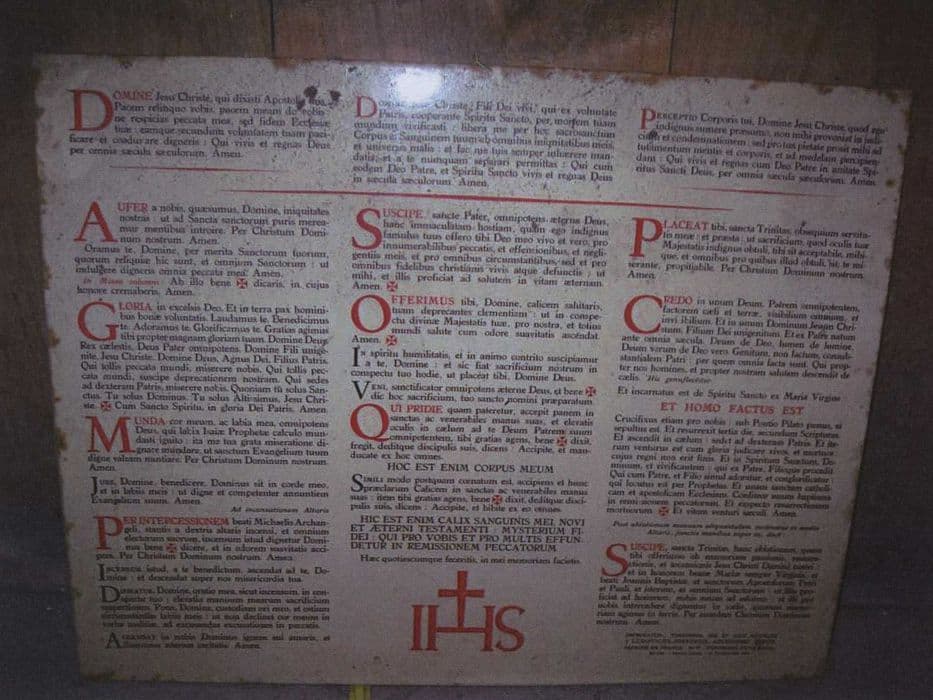 DOMINE Jesu Christe, qui dixisti Apostolis
Pacem relinquo vobis, pacem meam do vobis
ne respicias peccata mea, sed fidem Ecclesiæ
tuæ : eamque secundum voluntatem tuam paci-
ficare et coadunare digneris : Qui vivis et regnas Deus
per omnia sæcula sæculorum. Amen.
DOMINE Jesu Christe, Fili Dei vivi, qui ex voluntate
Patris, cooperante Spiritu Sancto, per mortem tuam
mundum vivificasti : libera me per hoc sacrosanctum
Corpus et Sanguinem tuum ab omnibus iniquitatibus meis,
et universis malis : et fac me tuis semper inhærere man-
datis; et a te numquam separari permittas : Qui cum
eodem Deo Patre, et Spiritu Sancto vivis et regnas Deus
in sæcula sæculorum. Amen.
PERCEPTIO Corporis tui, Domine Jesu Christe, quod ego
indignus sumere præsumo, non mihi proveniat in judi-
cium et condemnationem : sed pro tua pietate prosit mihi ad
tutamentum mentis et corporis, et ad medelam percipien-
dam : Qui vivis et regnas cum Deo Patre in unitate Spi-
ritus Sancti Deus, per omnia sæcula sæculorum. Amen.
AUFER a nobis, quæsumus, Domine, iniquitates
nostras : ut ad Sancta sanctorum puris merea-
mur mentibus introire. Per Christum Domi-
num nostrum. Amen.
Oramus te, Domine, per merita Sanctorum tuorum,
quorum reliquiæ hic sunt, et omnium Sanctorum : ut
indulgere digneris omnia peccata mea. Amen.
In Missa solemni : Ab illo bene ✠ dicaris, in cujus
honore cremaberis. Amen.
GLORIA in excelsis Deo. Et in terra pax homini-
bus bonæ voluntatis. Laudamus te. Benedicimus
te. Adoramus te. Glorificamus te. Gratias agimus
tibi propter magnam gloriam tuam. Domine Deus,
Rex cælestis, Deus Pater omnipotens. Domine Fili unige-
nite, Jesu Christe. Domine Deus, Agnus Dei, Filius Patris.
Qui tollis peccata mundi, miserere nobis. Qui tollis pec-
cata mundi, suscipe deprecationem nostram. Qui sedes
ad dexteram Patris, miserere nobis. Quoniam tu solus San-
ctus. Tu solus Dominus. Tu solus Altissimus, Jesu Chri-
ste. ✠ Cum Sancto Spiritu, in gloria Dei Patris. Amen.
MUNDA cor meum, ac labia mea, omnipotens
Deus, qui labia Isaiæ Prophetæ calculo mun-
dasti ignito : ita me tua grata miseratione di-
gnare mundare, ut sanctum Evangelium tuum
digne valeam nuntiare. Per Christum Dominum nostrum.
Amen.
JUBE, Domine, benedicere. Dominus sit in corde meo,
et in labiis meis : ut digne et competenter annuntiem
Evangelium suum. Amen.
Ad incensationem Altaris
PER INTERCESSIONEM beati Michaelis Archan-
geli, stantis a dextris altaris incensi, et omnium
electorum suorum, incensum istud dignetur Domi-
nus bene ✠ dicere, et in odorem suavitatis acci-
pere. Per Christum Dominum nostrum. Amen.
INCENSUM istud, a te benedictum, ascendat ad te, Do-
mine : et descendat super nos misericordia tua.
DIRIGATUR, Domine, oratio mea, sicut incensum, in con-
spectu tuo : elevatio manuum mearum sacrificium
vespertinum. Pone, Domine, custodiam ori meo, et ostium
circumstantiæ labiis meis : ut non declinet cor meum in
verba malitiæ, ad excusandas excusationes in peccatis.
ACCENDAT in nobis Dominus ignem sui amoris, et
flammam æternæ caritatis. Amen.
SUSCIPE, sancte Pater, omnipotens æterne Deus,
hanc immaculatam hostiam, quam ego indignus
famulus tuus offero tibi Deo meo vivo et vero, pro
innumerabilibus peccatis, et offensionibus, et negli-
gentiis meis, et pro omnibus circumstantibus, sed et pro
omnibus fidelibus christianis vivis atque defunctis : ut
mihi, et illis proficiat ad salutem in vitam æternam.
Amen. ✠
OFFERIMUS tibi, Domine, calicem salutaris,
tuam deprecantes clementiam : ut in conspe-
ctu divinæ Majestatis tuæ, pro nostra, et totius
mundi salute cum odore suavitatis ascendat.
Amen. ✠
IN spiritu humilitatis, et in animo contrito suscipiamur
a te, Domine : et sic fiat sacrificium nostrum in
conspectu tuo hodie, ut placeat tibi, Domine Deus.
VENI, sanctificator omnipotens æterne Deus, et bene ✠
dic hoc sacrificium, tuo sancto nomini præparatum.
QUI PRIDIE quam pateretur, accepit panem in
sanctas ac venerabiles manus suas, et elevatis
oculis in cælum ad te Deum Patrem suum
omnipotentem, tibi gratias agens, bene ✠ dixit,
fregit, deditque discipulis suis, dicens : Accipite, et man-
ducate ex hoc omnes.
HOC EST ENIM CORPUS MEUM
SIMILI modo postquam cœnatum est, accipiens et hunc
præclarum Calicem in sanctas ac venerabiles manus
suas : item tibi gratias agens, bene ✠ dixit, deditque disci-
pulis suis, dicens : Accipite, et bibite ex eo omnes.
HIC EST ENIM CALIX SANGUINIS MEI, NOVI
ET ÆTERNI TESTAMENTI : MYSTERIUM FI-
DEI : QUI PRO VOBIS ET PRO MULTIS EFFUN-
DETUR IN REMISSIONEM PECCATORUM
Hæc quotiescumque feceritis, in mei memoriam facietis.
IHS
PLACEAT tibi, sancta Trinitas, obsequium servitu-
tis meæ : et præsta : ut sacrificium, quod oculis tuæ
Majestatis indignus obtuli, tibi sit acceptabile, mihi-
que, et omnibus pro quibus illud obtuli, sit, te mi-
serante, propitiabile. Per Christum Dominum nostrum.
Amen.
CREDO in unum Deum. Patrem omnipotentem,
factorem cæli et terræ, visibilium omnium, et
invisibilium. Et in unum Dominum Jesum Chri-
stum, Filium Dei unigenitum. Et ex Patre natum
ante omnia sæcula. Deum de Deo, lumen de lumine,
Deum verum de Deo vero. Genitum, non factum, consub-
stantialem Patri : per quem omnia facta sunt. Qui prop-
ter nos homines, et propter nostram salutem descendit de
cælis. Hic genuflectitur
Et incarnatus est de Spiritu Sancto ex Maria Virgine
ET HOMO FACTUS EST
Crucifixus etiam pro nobis : sub Pontio Pilato passus, et
sepultus est. Et resurrexit tertia die, secundum Scripturas.
Et ascendit in cælum : sedet ad dexteram Patris. Et ite-
rum venturus est cum gloria judicare vivos, et mortuos :
cujus regni non erit finis. Et in Spiritum Sanctum, Do-
minum, et vivificantem : qui ex Patre, Filioque procedit.
Qui cum Patre, et Filio simul adoratur, et conglorificatur :
qui locutus est per Prophetas. Et unam sanctam catholi-
cam et apostolicam Ecclesiam. Confiteor unum baptisma
in remissionem peccatorum. Et exspecto resurrectionem
mortuorum. ✠ Et vitam venturi sæculi. Amen.
Post ablutionem manuum
Altaris, junctis manibus super eo, dicit
SUSCIPE, sancta Trinitas, hanc oblationem, quam
tibi offerimus ob memoriam passionis, resurre-
ctionis, et ascensionis Jesu Christi Domini nostri :
et in honorem beatæ Mariæ semper Virginis, et
beati Joannis Baptistæ, et sanctorum Apostolorum Petri
et Pauli, et istorum, et omnium Sanctorum : ut illis pro-
ficiat ad honorem, nobis autem ad salutem : et illi pro
nobis intercedere dignentur in cælis, quorum memo-
riam agimus in terris. Per eumdem Christum Dominum
nostrum. Amen.